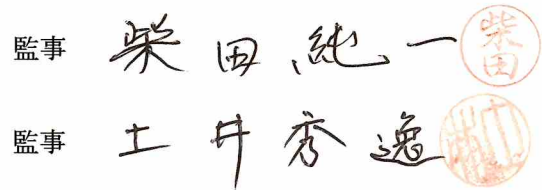 監事 柴田純一 柴田
監事 土井秀逸